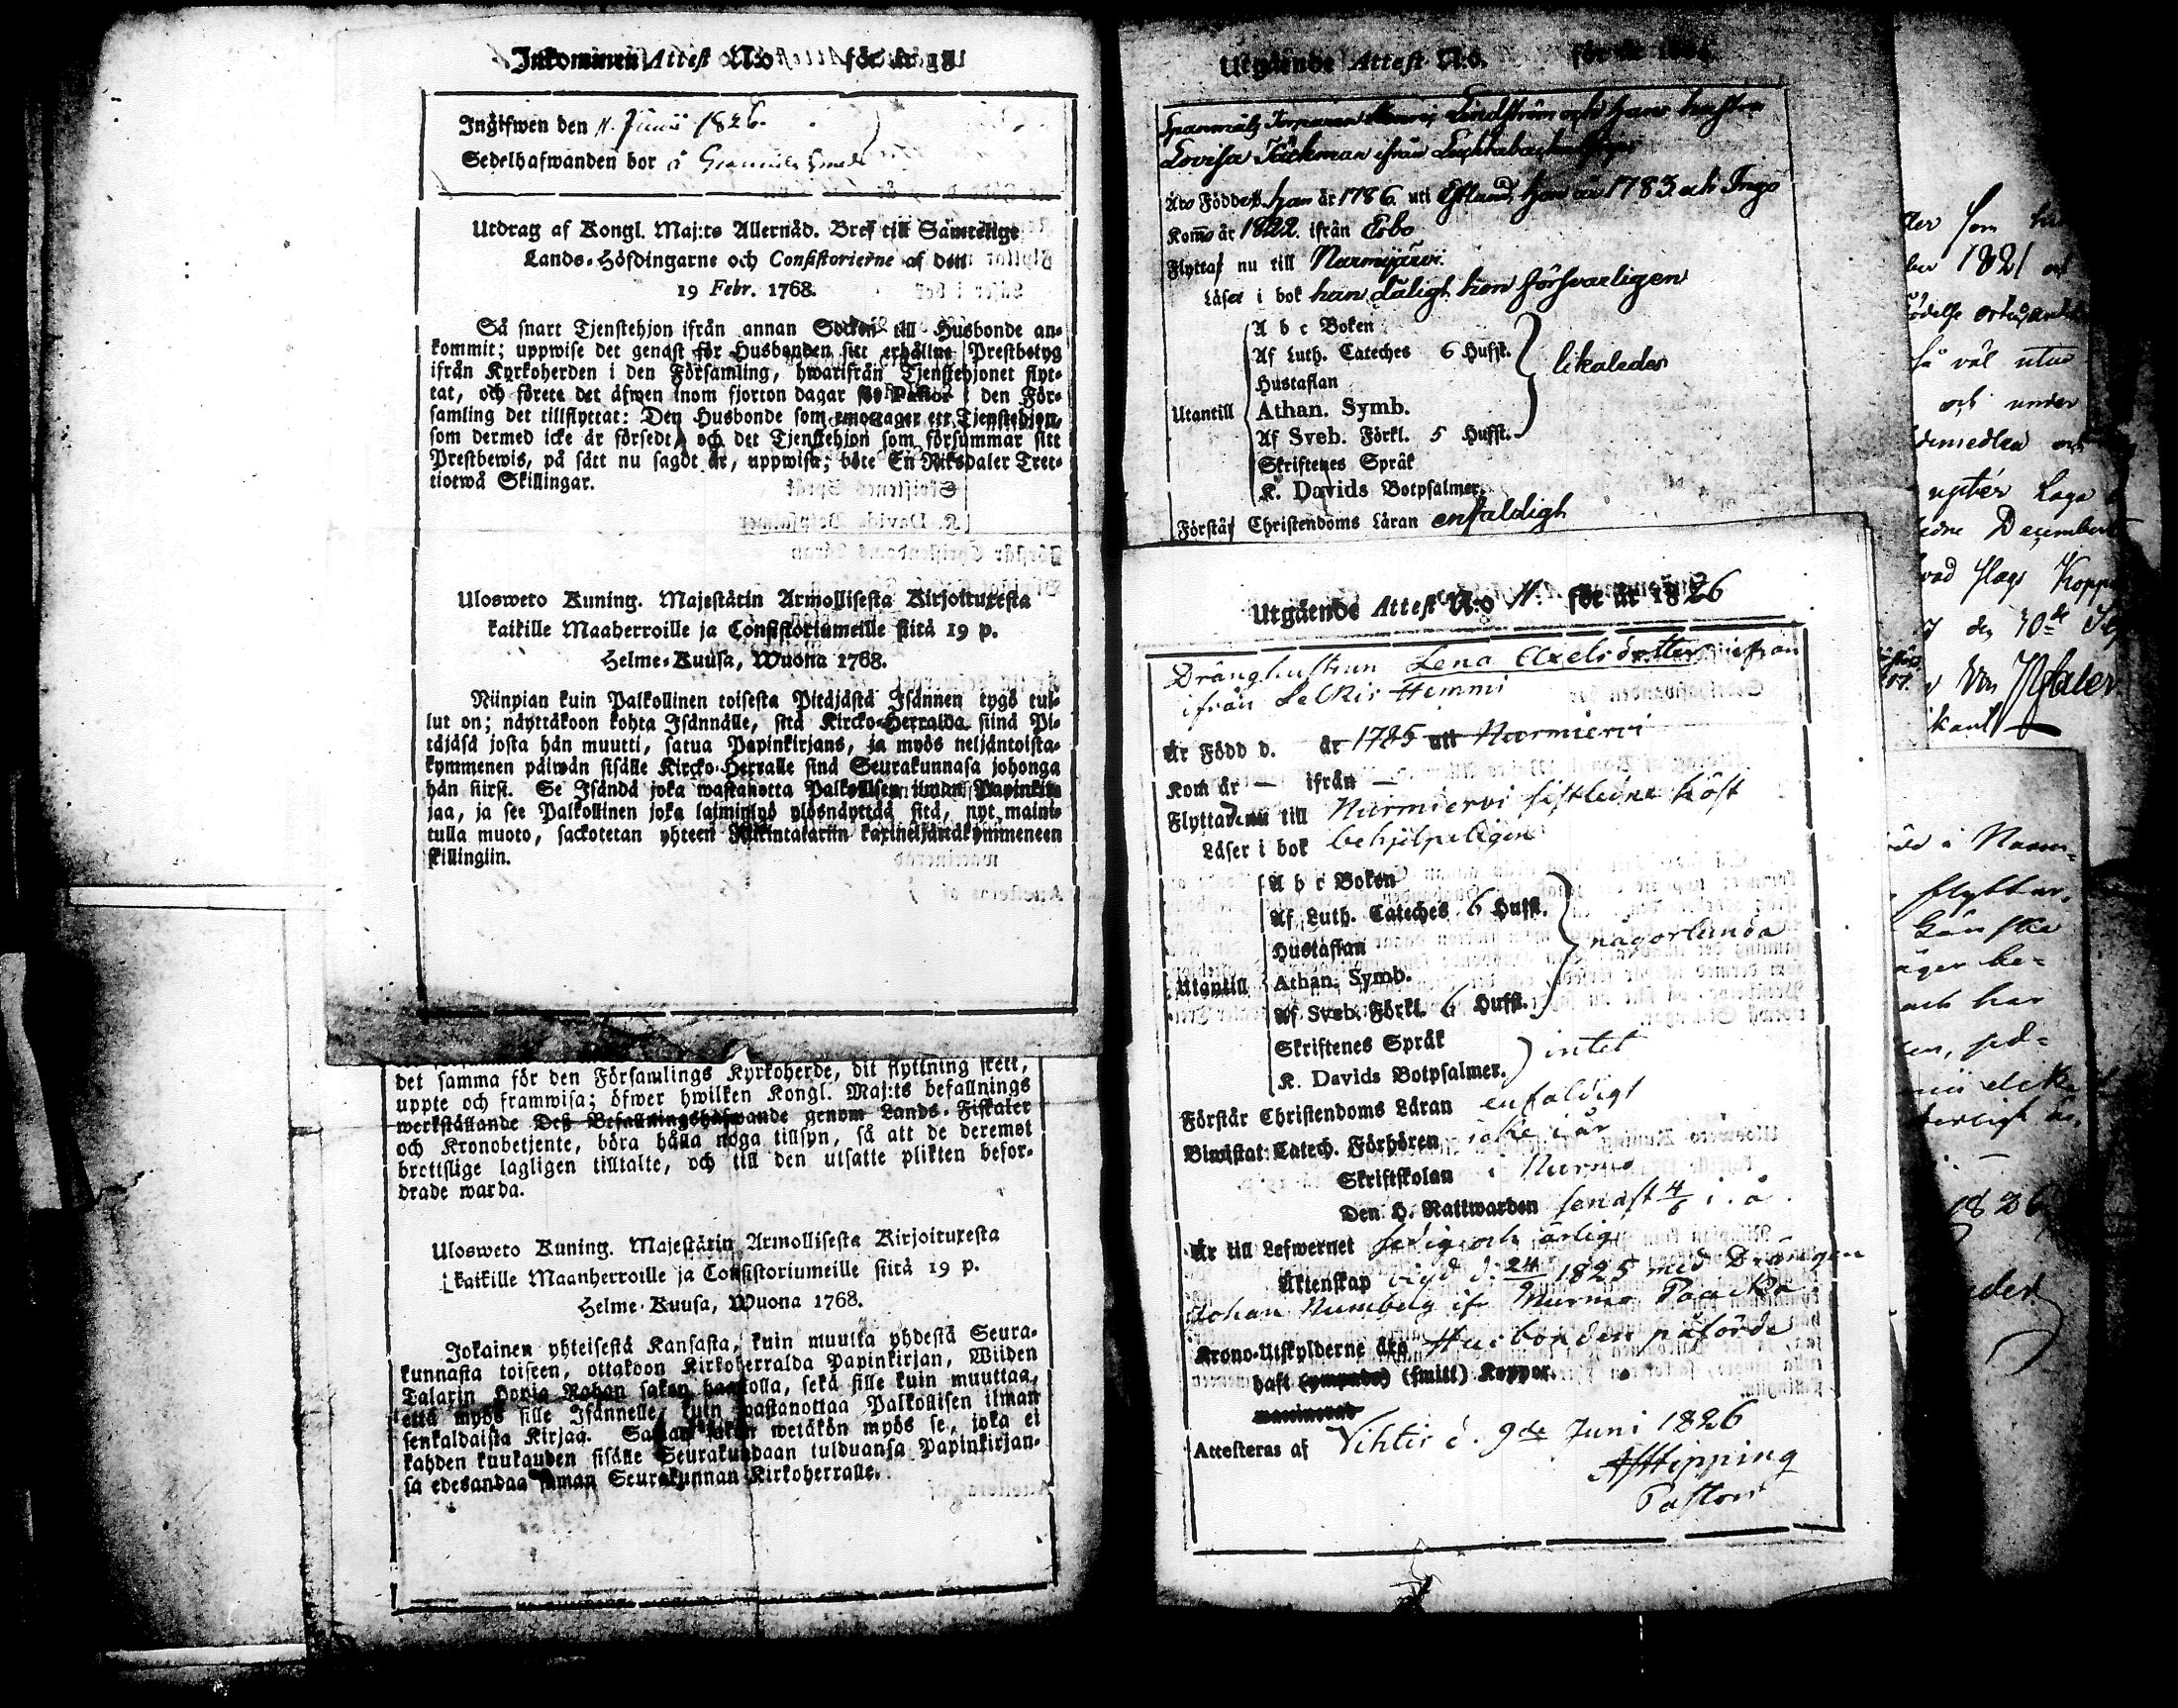 Inkommen Attest N:o för år 18
Ingifwen den 11. Junii 1826.
Sedelhafwanden bor å
Utdrag af Kongl. Maj:ts Allernåd. Bref till Samtelige
Lands-Höfdingarne och Consistorierne af den
19 Febr. 1768.
Så snart Tjenstehjon ifrån annan Socken till Husbonde an-
kommit; uppwise det genast för Husbonden sitt erhållne Prestbetyg
ifrån Kyrkoherden i den Församling, hwarifrån Tjenstehjonet flyt-
tat, och förete det äfwen inom fjorton dagar för Pastor i den För-
samling det tillflyttat: Den Husbonde som emottager ett Tjenstehjon,
som dermed icke är försedt, och det Tjenstehjon som försummar sitt
Prestbewis, på sätt nu sagdt är, uppwisa; böte En Riksdaler Tret-
tiotwå Skillingar.
Ulosweto Kuning. Majestätin Armollisesta Kirjoituxesta
kaikille Maaherroille ja Consistoriumeille siitä 19 p.
Helme-Kuusa, Wuona 1768.
Niinpian kuin Palkollinen toisesta Pitäjästä Isännen tygö tul-
lut on; näyttäkoon kohta Isännälle, sitä Kircko-Herralda siinä Pi-
täjäsä josta hän muutti, satua Papinkirjans, ja myös neljäntoista-
kymmenen päiwän sisälle Kircko-Herralle sinä Seurakunnasa johonga
hän siirsi. Se Isändä joka wastanotta Palkollisen ilman Papinkir-
jaa, ja see Palkollinen joka laiminlyö ylösnäyttää sitä, nyt maini-
tulla muoto, sackotetan yhteen Rikintalariin kaxineljättäkymmeneen
skillingiin.
det samma för den Församlings Kyrkoherde, dit flyttning skett,
uppte och framwisa; öfwer hwilken Kongl. Maj:ts befallnings
werkställande Deß Befallningshafwande genom Lands-Fiskaler
och Kronobetjente, böra hålla noga tillsyn, så att de deremot
brottslige lagligen tilltalte, och till den utsatte plikten befor-
drade warda.
Ulosweto Kuning. Majestätin Armollisesta Kirjoituxesta
kaikille Maanherroille ja Consistoriumeille siitä 19 p.
Helme-Kuusa, Wuona 1768.
Jokainen yhteisestä Kansasta, kuin muutta yhdestä Seura-
kunnasta toiseen, ottakoon Kirkoherralda Papinkirjan, Wiiden
Talarin Hopia Rahan sakon haastolla, sekä sille kuin muuttaa,
että myös sille Isännelle, kuin wastanottaa Palkollisen ilman
senkaldaista Kirjaa. wetäkön myös se, joka ei
kahden kuukauden sisälle Seurakundaan tulduansa Papinkirjan-
sa edesandaa saman Seurakunnan Kirkoherralle.
Utgående Attest N:o för år
Lindström och hans hustru
Lovisa Täckman ifrån
Äro Födde han år 1786 uti Estland, hon år 1783 uti Ingo
Kommo år 1822 ifrån Esbo
Flytta nu till Nurmijärvi
Läsa i bok han dåligt hon försvarligen
A b c Boken
Af Luth. Cateches 6 Hufst.
Hustaflan
likaledes
Utantill
Athan. Symb.
Af Sveb. Förkl. 5 Hufst.
Skriftenes Språk
K. Davids Botpsalmer.
Förstå Christendoms Läran enfaldigt
Utgående Attest N:o 11. för år 1826
Dränghustrun Lena Axelsdotter ifrån
ifrån Selkis Hemmi
Är Född d. år 1785 uti Nurmiervi
Kom år — ifrån —
Flyttade nu till Nurmiervi sistledne höst
Läser i bok behjelpeligen
A b c Boken
Af Luth. Cateches 6 Hufst.
Hustaflan
någorlunda
Utantill
Athan. Symb.
Af Sveb. Förkl. 6 Hufst.
Skriftenes Språk
intet
K. Davids Botpsalmer.
Förstår Christendoms Läran enfaldigt
Biwistat Catech. Förhören icke i år
Skriftskolan i Nurmo
Den H. Nattwarden senast 4/6 i. å.
Är till Lefwernet sedig och ärlig
Äktenskap vigd d. 24/ 1825 med Drängen
Johan Numberg ifr Nurmo Paacka
Krono-Utskylderne äro Husbonden påförde
haft (ympade) (smitt) Koppor.
Attesteras af Vihtis d. 9de Juni 1826
AJHipping
Pastor
som
1821
så väl utur
och under
Laga
December
slags Koppor
den 10de
Von Pfaler
i Nurm-
flyttar
och har
1826